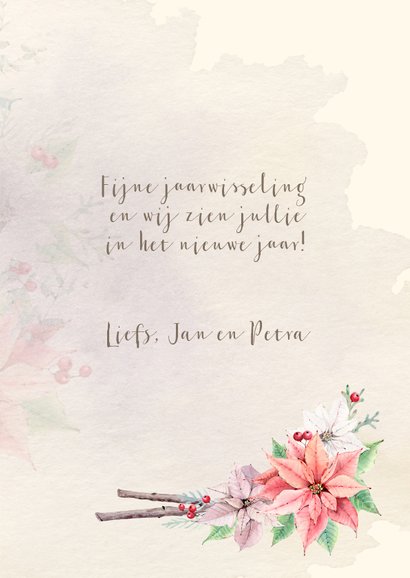 Fijne jaarwisseling
en wij zien jullie
in het nieuwe jaar!
Liefs, Jan en Petra